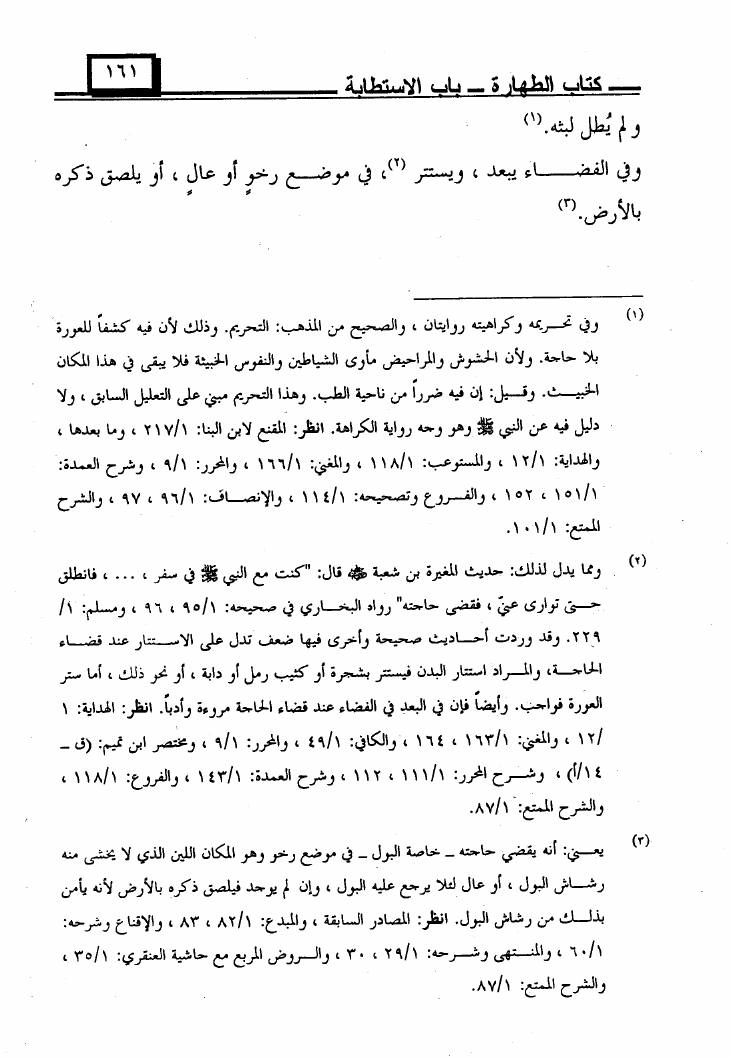 ١٦١
كتاب الطهارة ــ باب الاستطابة
ولم يُطل لبثه.(١)
وفي الفضـــــاء يبعد ، ويستتر (٢)، في موضــع رخوٍ أو عالٍ ، أو يلصق ذكره
بالأرض.(٣)
(١) وفي تحــريمه وكراهيته روايتان ، والصحيح من المذهب: التحريم. وذلك لأن فيه كشفاً للعورة
بلا حاجة. ولأن الحشوش والمراحيض مأوى الشياطين والنفوس الخبيثة فلا يبقى في هذا المكان
الخبيــث. وقــيل: إن فيه ضرراً من ناحية الطب. وهذا التحريم مبني على التعليل السابق ، ولا
دليل فيه عن النبي ﷺ وهو وجه رواية الكراهة. انظر: المقنع لابن البنا: ٢١٧/١ ، وما بعدها ،
والهداية: ١٢/١ ، والمستوعب: ١١٨/١ ، والمغني: ١٦٦/١ ، والمحرر: ٩/١ ، وشرح العمدة:
١٥١/١ ، ١٥٢ ، والفــروع وتصحيحه: ١١٤/١ ، والإنصــاف: ٩٦/١ ، ٩٧ ، والشرح
الممتع: ١٠١/١.
(٢) ومما يدل لذلك: حديث المغيرة بن شعبة ﷺ قال: "كنت مع النبي ﷺ في سفر ، ... ، فانطلق
حــتى توارى عنّي ، فقضى حاجته" رواد البخــاري في صحيحه: ٩٥/١ ، ٩٦ ، ومسلم: ١/
٢٢٩. وقد وردت أحــاديث صحيحة وأخرى فيها ضعف تدل على الاســتتار عند قضــاء
الحاجــة، والمــراد استتار البدن فيستتر بشجرة أو كثيب رمل أو دابة ، أو نحو ذلك ، أما ستر
العورة فواجب. وأيضاً فإن في البعد في الفضاء عند قضاء الحاجة مروءة وأدباً. انظر: الهداية: ١
/١٢ ، والمغني: ١٦٣/١ ، ١٦٤ ، والكافي: ٤٩/١ ، والمحرر: ٩/١ ، ومختصر ابن تميم: (ق ــ
١٤/أ) ، وشــرح المحرر: ١١١/١ ، ١١٢ ، وشرح العمدة: ١٤٣/١ ، والفروع: ١١٨/١ ،
والشرح الممتع: ٨٧/١.
(٣) يعــني: أنه يقضي حاجته ــ خاصة البول ــ في موضع رخو وهو المكان اللين الذي لا يخشى منه
رشــاش البول ، أو عال لئلا يرجع عليه البول ، وإن لم يوجد فيلصق ذكره بالأرض لأنه يأمن
بذلــك من رشاش البول. انظر: المصادر السابقة ، والمبدع: ٨٢/١ ، ٨٣ ، والإقناع وشرحه:
٦٠/١ ، والمنــتهى وشــرحه: ٢٩/١ ، ٣٠ ، والــروض المربع مع حاشية العنقري: ٣٥/١ ،
والشرح الممتع: ٨٧/١.